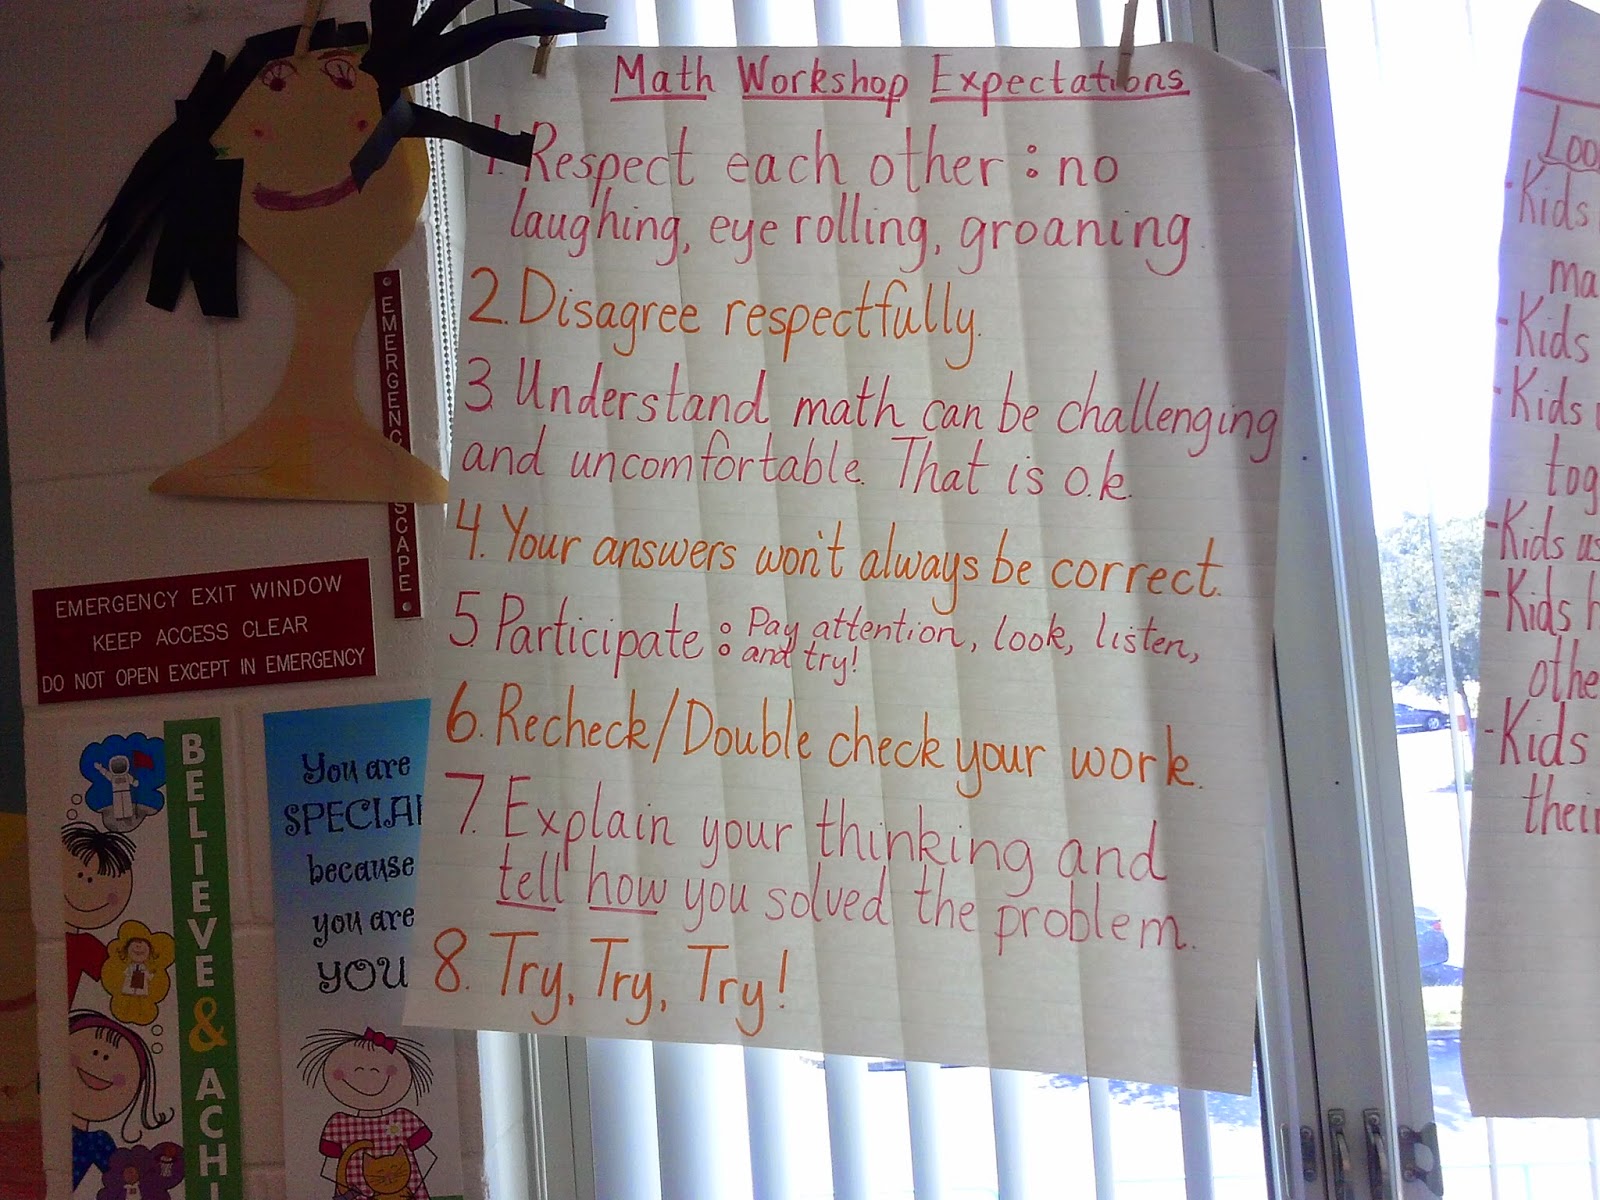 Math Workshop Expectations
1. Respect each other: no
laughing, eye rolling, groaning.
2. Disagree respectfully.
3. Understand math can be challenging
and uncomfortable. That is o.k.
4. Your answers won't always be correct.
5. Participate: Pay attention, look, listen,
and try!
6. Recheck/Double check your work.
7. Explain your thinking and
tell how you solved the problem.
8. Try, Try, Try!
EMERGENCY EXIT WINDOW
KEEP ACCESS CLEAR
DO NOT OPEN EXCEPT IN EMERGENCY
BELIEVE & ACHI
You are
SPECIAL
because
you are
YOU
Kids
Kids
Kids
Kids
Kids
Kids